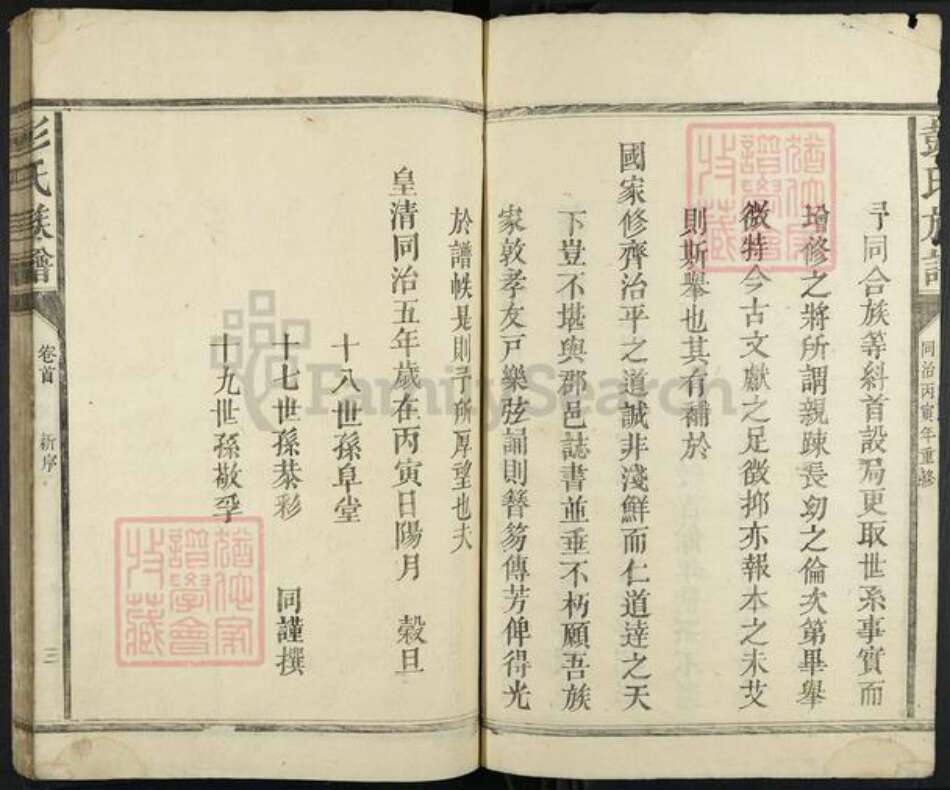 彭氏族譜
同治丙寅年重修
予同合族等糾首設局更取世系事實而
增修之將所謂親踈長幼之倫次第畢舉
微特今古文獻之足徵抑亦報本之未艾
則斯舉也其有補於
國家修齊治平之道誠非淺鮮而仁道達之天
下豈不堪與郡邑誌書並垂不朽願吾族
家敦孝友戶樂弦誦則簪笏傳芳俾得光
於譜帙是則予所厚望也夫
皇清同治五年歲在丙寅日陽月 穀旦
十八世孫阜堂
十七世孫恭彩 同謹撰
十九世孫敬孚
彭氏族譜
卷首 新序
三
猶他家
譜學會
收藏
猶他家
譜學會
收藏
FamilySearch